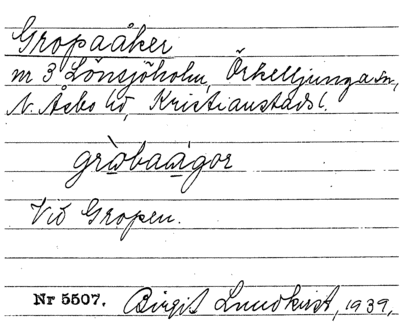 Gropaåker
nr 3 Lönsjöholm, Örkelljunga sn,
N. Åsbo hd, Kristianstads l.
gròbaàgor
Vid Gropen.
Nr 5507. Birgit Lundkvist, 1939.